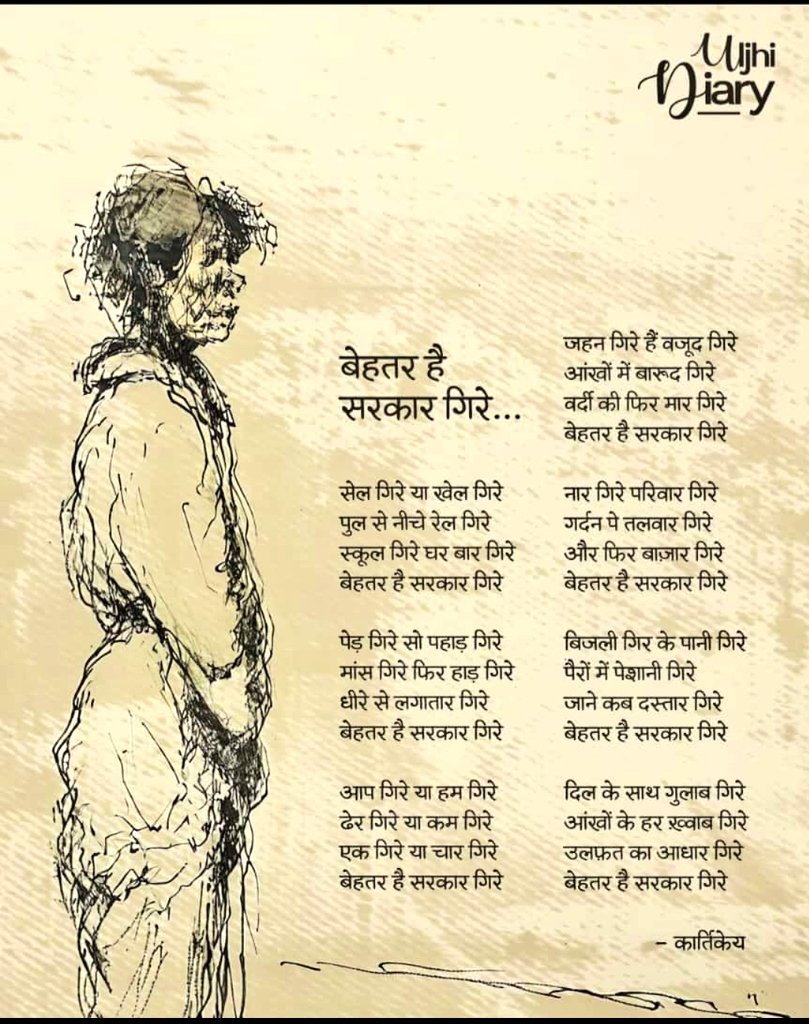 Uljhi
Diary
बेहतर है
सरकार गिरे...
सेल गिरे या खेल गिरे
पुल से नीचे रेल गिरे
स्कूल गिरे घर बार गिरे
बेहतर है सरकार गिरे
पेड़ गिरे सो पहाड़ गिरे
मांस गिरे फिर हाड़ गिरे
धीरे से लगातार गिरे
बेहतर है सरकार गिरे
आप गिरे या हम गिरे
ढेर गिरे या कम गिरे
एक गिरे या चार गिरे
बेहतर है सरकार गिरे
जहन गिरे हैं वजूद गिरे
आंखों में बारूद गिरे
वर्दी की फिर मार गिरे
बेहतर है सरकार गिरे
नार गिरे परिवार गिरे
गर्दन पे तलवार गिरे
और फिर बाज़ार गिरे
बेहतर है सरकार गिरे
बिजली गिर के पानी गिरे
पैरों में पेशानी गिरे
जाने कब दस्तार गिरे
बेहतर है सरकार गिरे
दिल के साथ गुलाब गिरे
आंखों के हर ख़्वाब गिरे
उलफ़त का आधार गिरे
बेहतर है सरकार गिरे
– कार्तिकेय